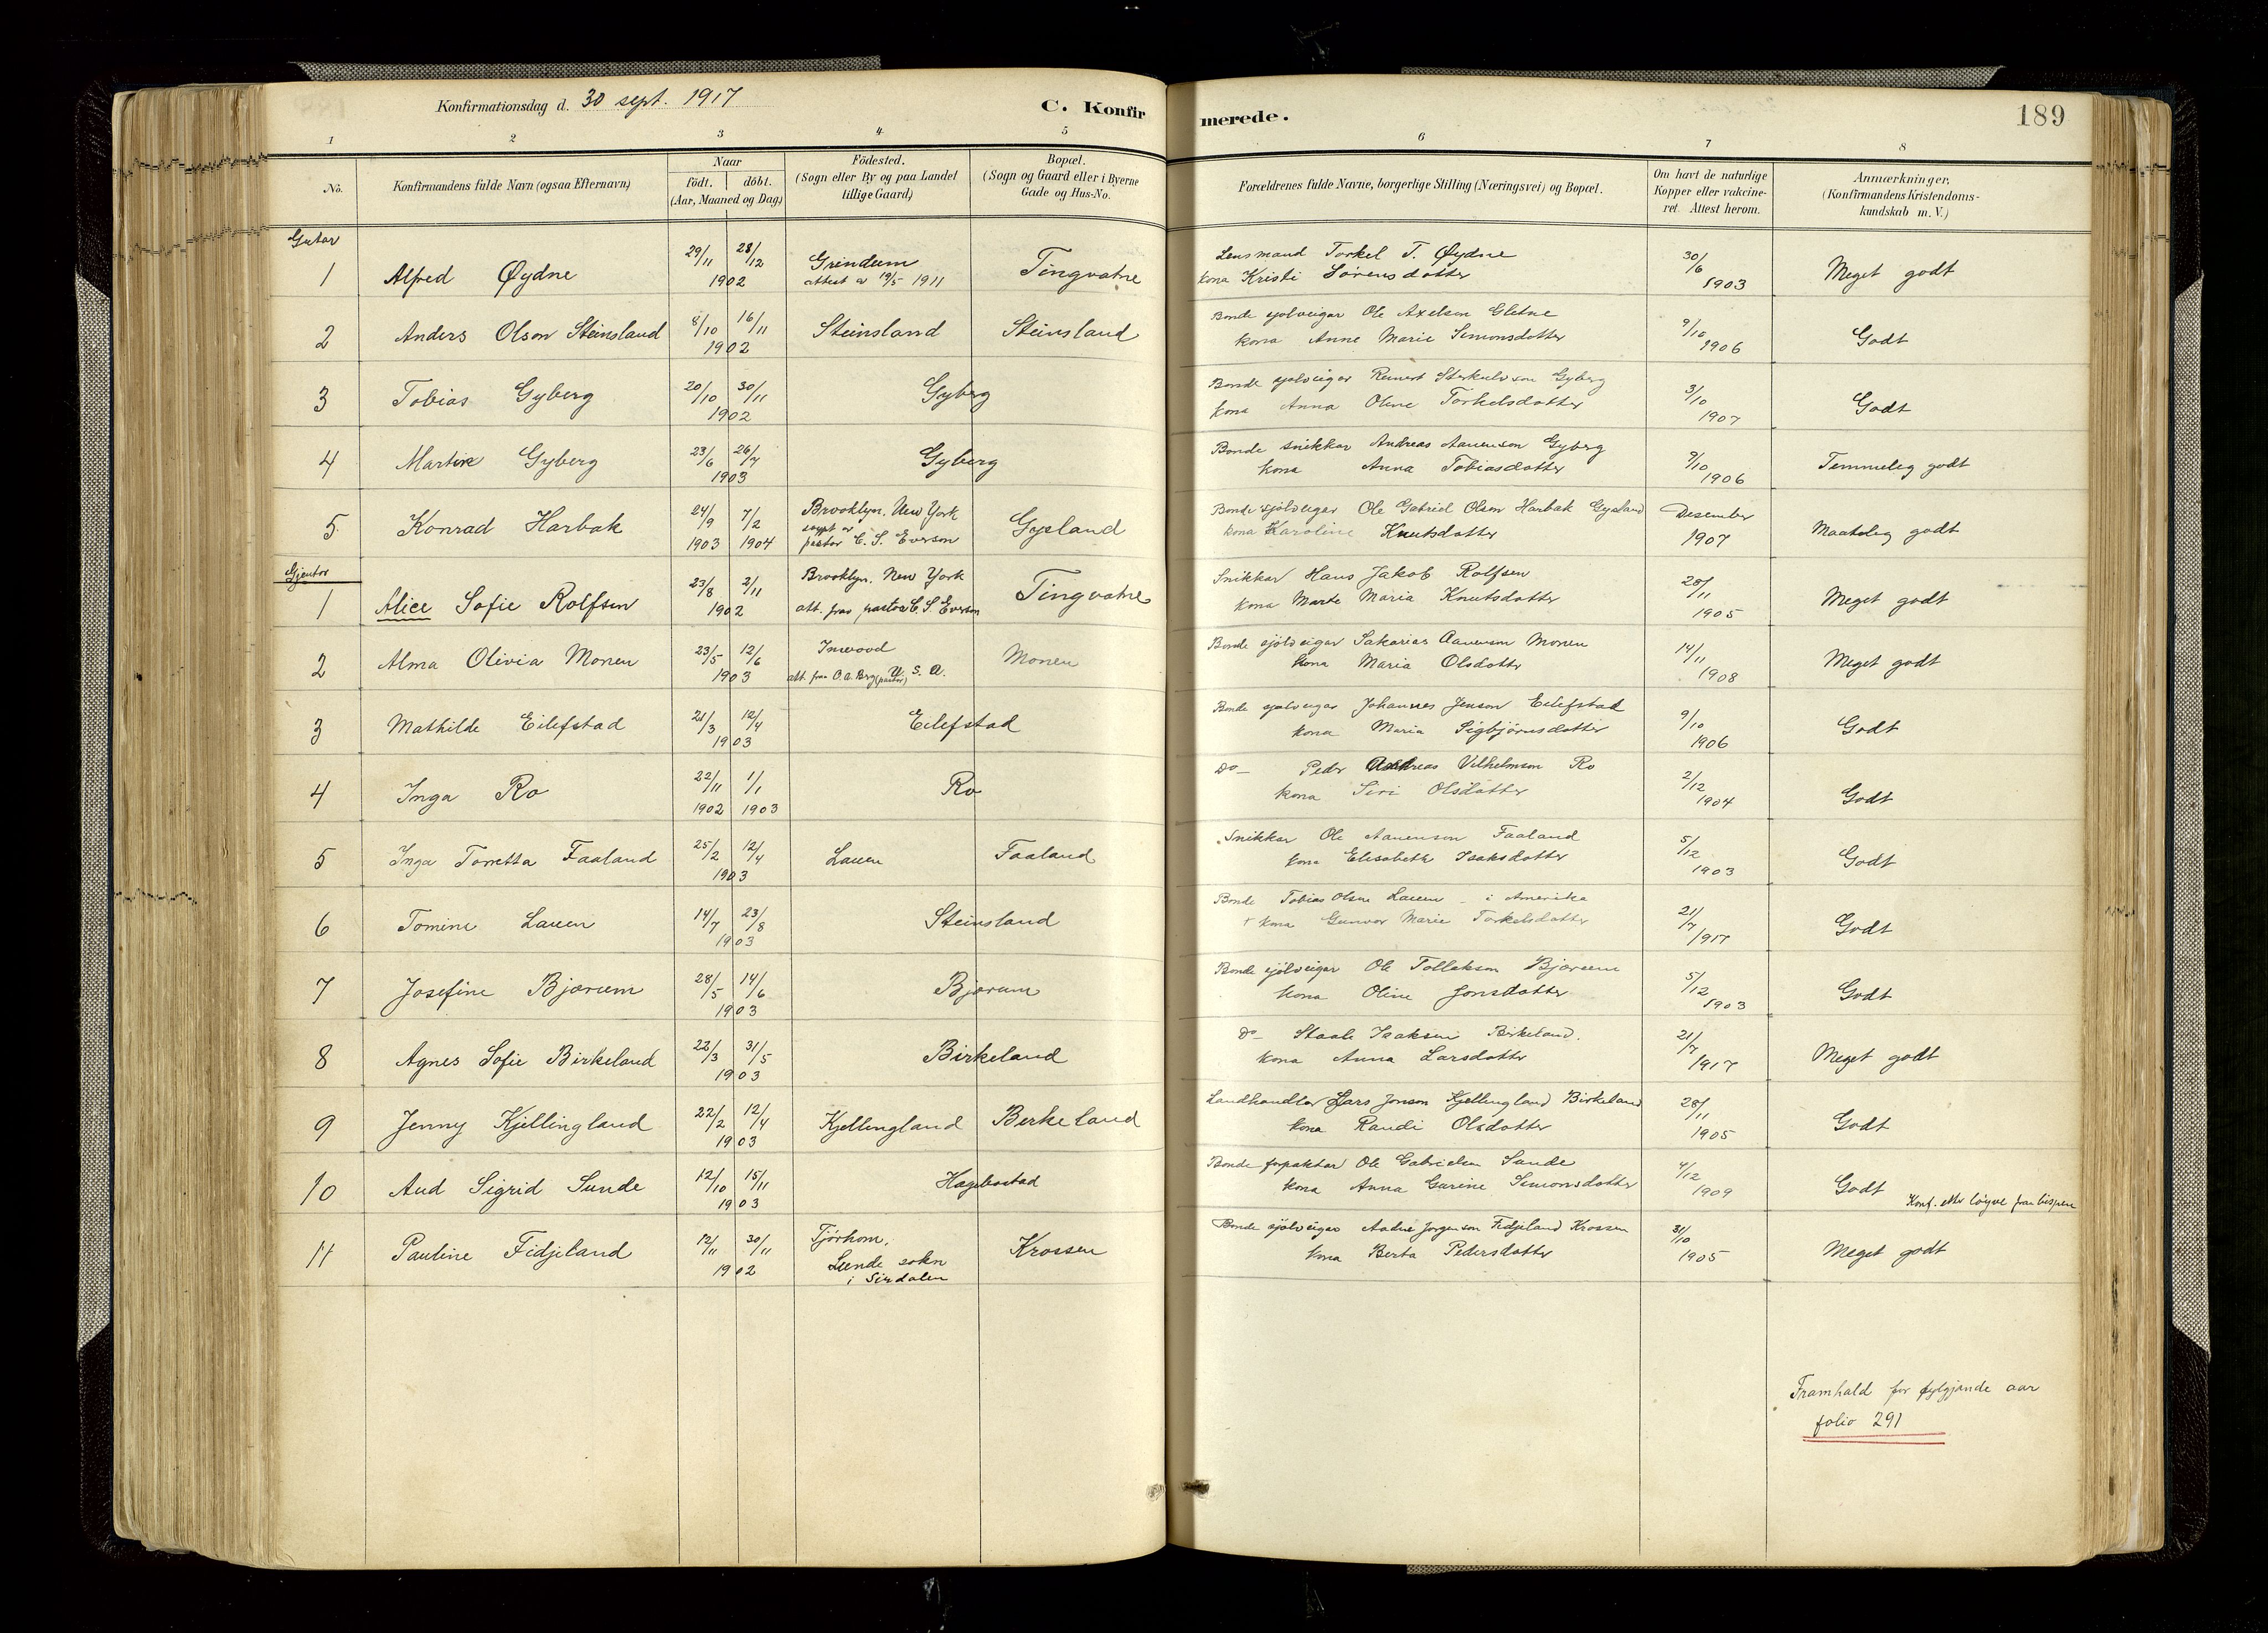 Konfirmationsdag d. 30 sept. 1917
C. Konfirmerede.
189
1 2 3 4 5 6 7 8
No.
Konfirmandens fulde Navn (ogsaa Efternavn)
Naar
födt. | döbt.
(Aar, Maaned og Dag)
Födested.
(Sogn eller By og paa Landet
tillige Gaard)
Bopæl.
(Sogn og Gaard eller i Byerne
Gade og Hus-No.
Forældrenes fulde Navne, borgerlige Stilling (Næringsvei) og Bopæl.
Om havt de naturlige
Kopper eller vakcine-
ret. Attest herom.
Anmærkninger,
(Konfirmandens Kristendoms-
kundskab m. V.)
Gutar
1 Alfred Øydne 29/11 28/12 1902 Grindum attest av 19/5 1911 Tingvatne
Lensmand Torkel T. Øydne
kona Kristi Sörensdotter
30/6 1903 Meget godt
2 Anders Olson Steinsland 8/10 16/11 1902 Steinsland Steinsland
Bonde sjolveigar Ole Axelson Gletne
kona Anne Marie Simonsdotter
9/10 1906 Godt
3 Tobias Gyberg 20/10 30/11 1902 Gyberg
Bonde sjolveigar Reinert Sterkulvson Gyberg
kona Anna Oline Torkelsdotter
3/10 1907 Godt
4 Martin Gyberg 23/6 26/7 1903 Gyberg
Bonde snikkar Andreas Aanenson Gyberg
kona Anna Tobiasdotter
9/10 1906 Temmeleg godt
5 Konrad Harbak 24/9 1903 7/2 1904 Brooklyn, New York
pastor C. S. Everson Gyeland
Bonde sjölveigar Ole Gabriel Olson Harbak Gyeland
kona Karoline Knutsdotter
Desember 1907 Maateleg godt
Gjentor
1 Alice Sofie Rolfsen 23/8 2/11 1902 Brooklyn, New York
att. fraa pastor C. S. Everson Tingvatne
Snikkar Hans Jakob Rolfsen
kona Marte Maria Knutsdotter
28/11 1905 Meget godt
2 Alma Olivia Monen 23/5 12/6 1903 Inwood
att. fraa O. A. Berg (pastor) U. S. A. Monen
Bonde sjölveigar Sakarias Aanenson Monen
kona Maria Olsdotter
14/11 1908 Meget godt
3 Mathilde Eilefstad 21/3 12/4 1903 Eilefstad
Bonde sjolveigar Johannes Jenson Eilefstad
kona Maria Sigbjörnsdotter
9/10 1906 Godt
4 Inga Ro 22/11 1902 1/1 1903 Ro
Do– Peder Andreas Vilhelmson Ro
kona Siri Olsdotter
2/12 1904 Godt
5 Inga Torretta Faaland 25/2 12/4 1903 Lauen Faaland
Snikkar Ole Aanenson Faaland
kona Elisabeth Isaksdotter
5/12 1903 Godt
6 Tomine Lauen 14/7 23/8 1903 Steinsland
Bonde Tobias Olsen Lauen – i Amerika
+ kona Gunvor Marie Torkelsdotter
21/7 1917 Godt
7 Josefine Bjærum 28/5 14/6 1903 Bjærum
Bonde sjölveigar Ole Tollakson Bjærum
kona Oline Jonsdotter
5/12 1903 Godt
8 Agnes Sofie Birkeland 22/3 31/5 1903 Birkeland
Do– Staale Isaksen Birkeland.
kona Anna Larsdotter
21/7 1917 Meget godt
9 Jenny Kjellingland 22/2 12/4 1903 Kjellingland Birkeland
Landhandlar Lars Jonson Kjellingland Birkeland
kona Randi Olsdotter
28/11 1905 Godt
10 Aud Sigrid Sunde 12/10 15/11 1903 Hægebostad
Bonde forpaktar Ole Gabrielsen Sunde
kona Anna Gurine Simonsdotter
4/12 1909 Godt Konf. etter löyve fraa bispen
11 Pauline Fidjeland 12/11 30/11 1902 Tjørhom,
Lunde sokn
i Sirdalen Krossen
Bonde sjölveigar Aadne Jorgenson Fidjeland Krossen
kona Berta Pedersdotter
31/10 1905 Meget godt
Framhald for fylgjande aar
folio 291